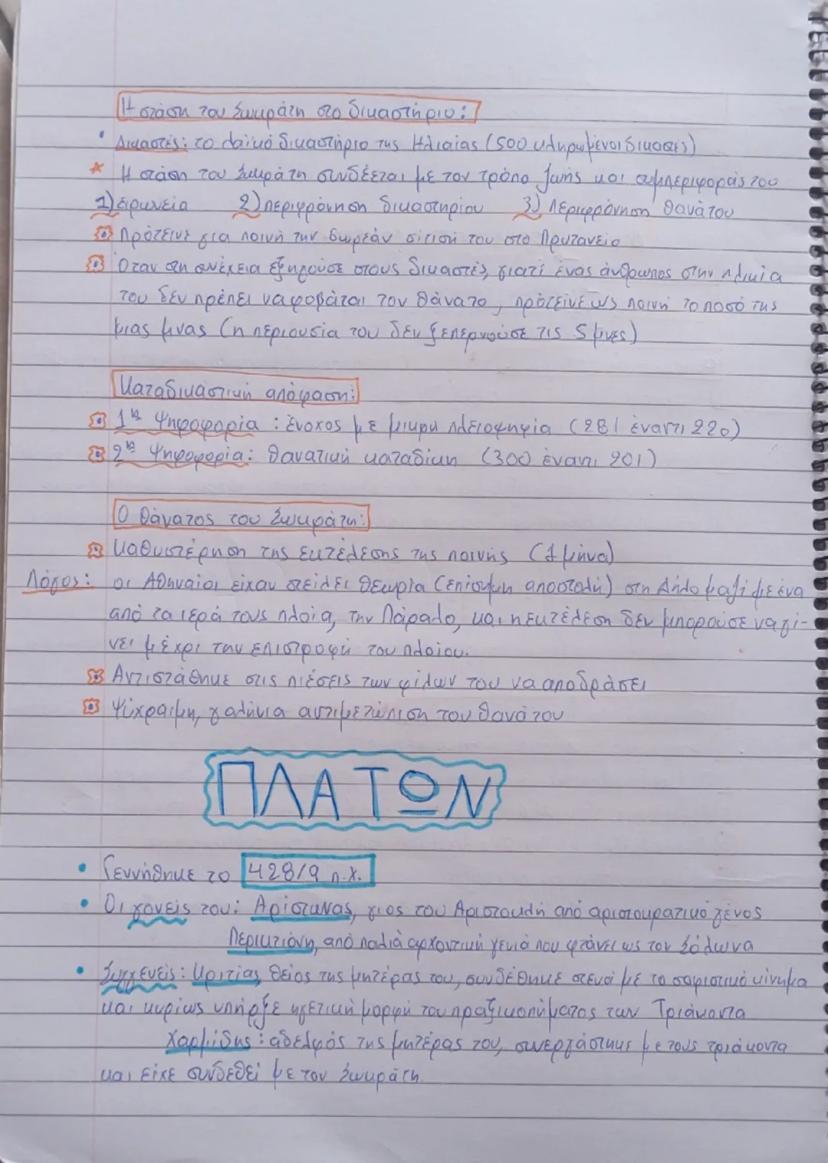 Η στάση του Σωκράτη στο δικαστήριο:
• Δικαστές: το λαϊκό δικαστήριο της Ηλιαίας (500 κληρωμένοι δικαστές)
* Η στάση του Σωκράτη συνδέεται με τον τρόπο ζωής και συμπεριφοράς του
1) Ειρωνεία 2) περιφρόνηση δικαστηρίου 3) Περιφρόνηση θανάτου
Πρότεινε για ποινή την δωρεάν σίτισή του στο Πρυτανείο
Όταν στη συνέχεια εξηγούσε στους δικαστές γιατί ένας άνθρωπος στην ηλικία
του δεν πρέπει να φοβάται τον θάνατο, πρότεινε ως ποινή το ποσό της
μιας μνας (η περιουσία του δεν ξεπερνούσε τις 5 μνες)
Καταδικαστική απόφαση:
1η Ψηφοφορία: ένοχος με μικρή πλειοψηφία (281 έναντι 220)
2η Ψηφοφορία: θανατική καταδίκη (300 έναντι 201)
Ο θάνατος του Σωκράτη:
Καθυστέρηση της εκτέλεσης της ποινής (1 μήνα)
Λόγος: οι Αθηναίοι είχαν στείλει θεωρία (επίσημη αποστολή) στη Δήλο μαζί με ένα
από τα ιερά τους πλοία, την Πάραλο, και η εκτέλεση δεν μπορούσε να γί-
νει μέχρι την επιστροφή του πλοίου.
Αντιστάθηκε στις πιέσεις των φίλων του να αποδράσει
Ψύχραιμη, γαλήνια αντιμετώπιση του θανάτου
ΠΛΑΤΩΝ
• Γεννήθηκε το 428/9 π.Χ.
• Οι γονείς του: Αρίστωνας, γιος του Αριστοκλή από αριστοκρατικό γένος
Περικτιόνη, από παλιά αρχοντική γενιά που φτάνει ως τον Σόλωνα
• Συγγενείς: Κριτίας, θείος της μητέρας του, συνδέθηκε στενά με το σοφιστικό κίνημα
και κυρίως υπήρξε ηγετική μορφή του πραξικοπήματος των Τριάκοντα
Χαρμίδης: αδελφός της μητέρας του, συνεργάστηκε με τους τριάκοντα
και είχε συνδεθεί με τον Σωκράτη.